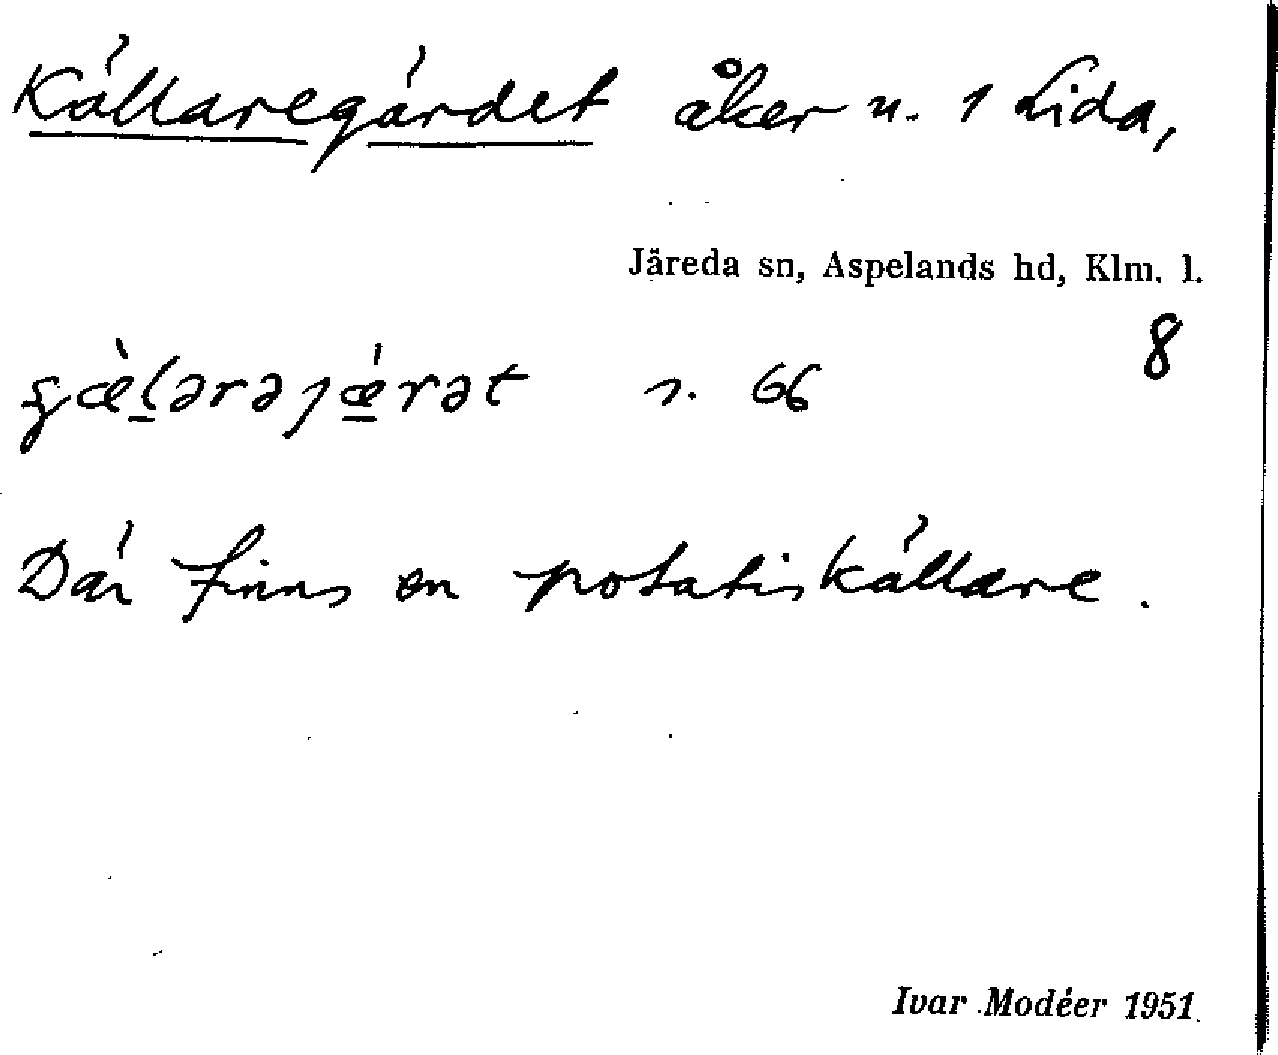 Källaregärdet åker u. 1 Lida,
Järeda sn, Aspelands hd, Klm. l.
8
s. 66
Där finns en potatiskällare.
Ivar Modéer 1951